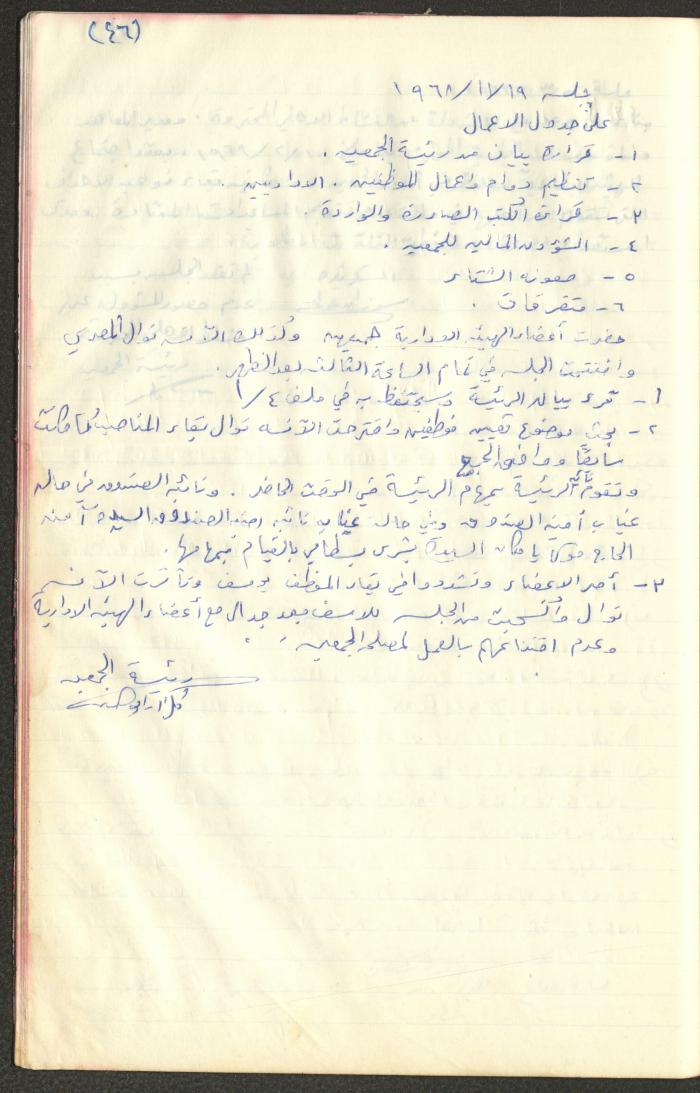 (٤٦)
جلسة ١٩٦٨/١١/١٩
على جدول الاعمال
١- قراءة بيان من رئيسة الجمعية .
٢- تنظيم دوام واعمال الموظفين . الاداريين .
٣- قراءة الكتب الصادرة والواردة .
٤- الشؤون المالية للجمعية .
٥- معونة الشتاء
٦- متفرقات .
حضرت أعضاء الهيئة الادارية جميعهن وكذلك الآنسة نوال المصري
وافتتحت الجلسة في تمام الساعة الثالثة بعد الظهر .
١- قرء بيان الرئيسة وسيحتفظ به في ملف ١/٤
٢- بحث موضوع تعيين موظفين واقترحت الآنسة نوال بقاء المناصب كما كانت
سابقا ووافق الجميع
وتقوم نائبة الرئيسة بمهام الرئيسة في الوقت الحاضر . ونائبة الصندوق في حالة
غياب أمينة الصندوق وفي حالة غياب نائبة امينة الصندوق السيدة آمنة
الحاج بإمكان السيدة بشرى بسطامي بالقيام بمهامها .
٣- أصر الاعضاء وتشددوا في بقاء الموظف يوسف وتأثرت الآنسة
نوال وانسحبت من الجلسة للاسف بعد جدال مع أعضاء الهيئة الادارية
وعدم اقتناعهم بالعمل لمصلحة الجمعية .
رئيسة الجمعية